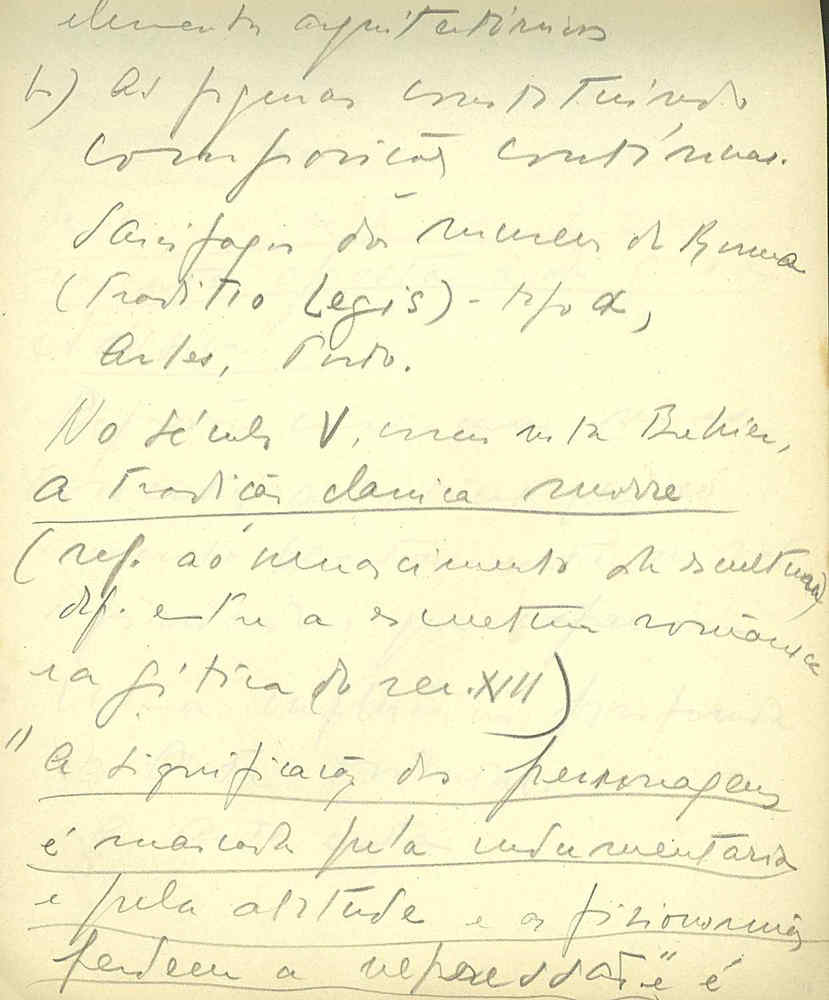 elementos arquitectónicos
b) As figuras constituindo
composições contínuas.
Sarcófagos dos museus de Roma
(Traditio Legis) - tipo α,
Arles,
No século V,
a tradição classica morre
(ref. ao renascimento de escultura,
dif. entre a escultura românica
e a gótica do sec. XIII)
"A significação dos personagens
é marcada pela indumentaria
e pela atitude e as fisionomias
perdem a expressão" e é